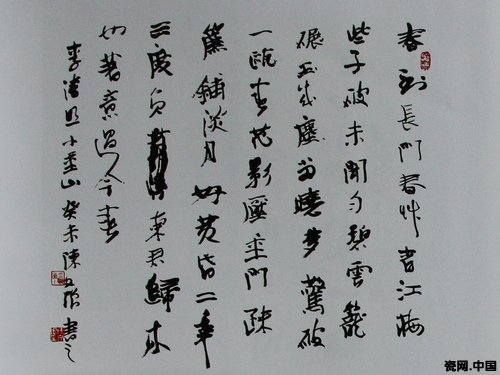 春到長門春艸青江梅
些子破未開勻碧雲籠
碾玉成塵留曉夢驚破
一甌春花影壓重門疎
簾鋪淡月好黄昏二年
三度負東君歸來
也著意過今春
李清照小重山癸未陳書之
瓷网.中国